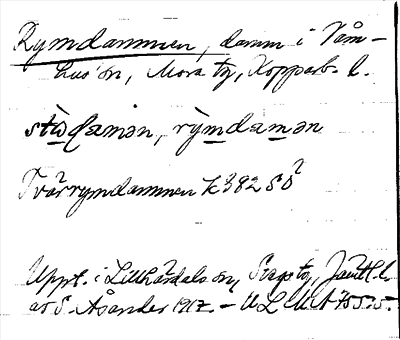 Rymdammen, damm i Våm-
husån, Mora tg, Kopparb. l.
stòɖamən, rỳmdamən
Tvärrymdammen K 382 SÖ
Uppt. i Lillhärdals sn, Svegs tg, Jämtl. l.
av S. Åsander 1917. – ULMA 755:5.